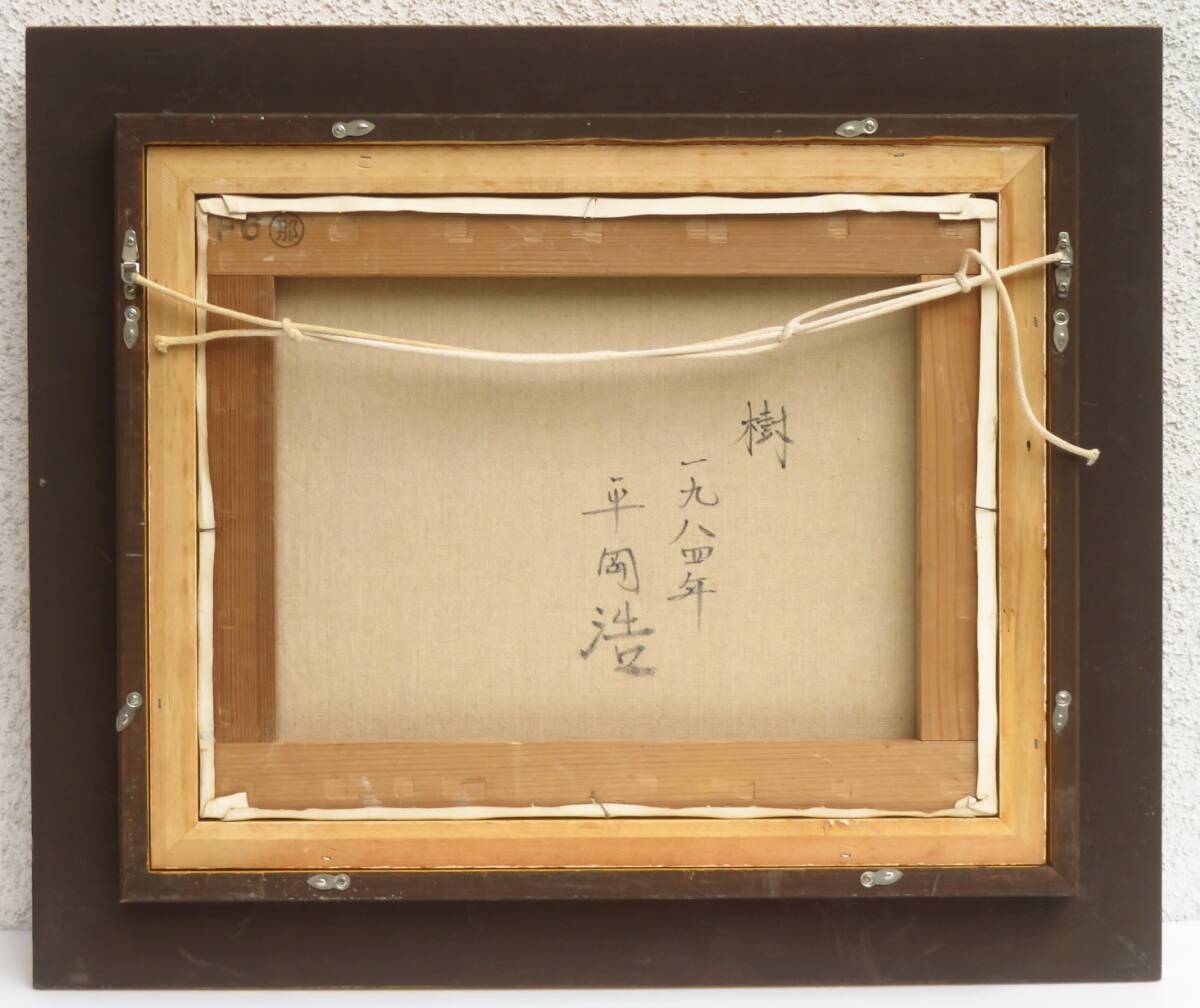 F6 那
樹
一九八四年
平岡浩